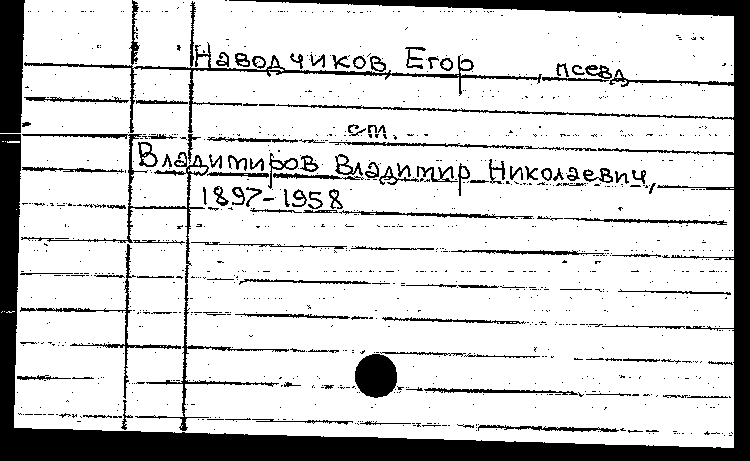 Наводчиков, Егор , псевд
см.
Владимиров Владимир Николаевич,
1897-1958